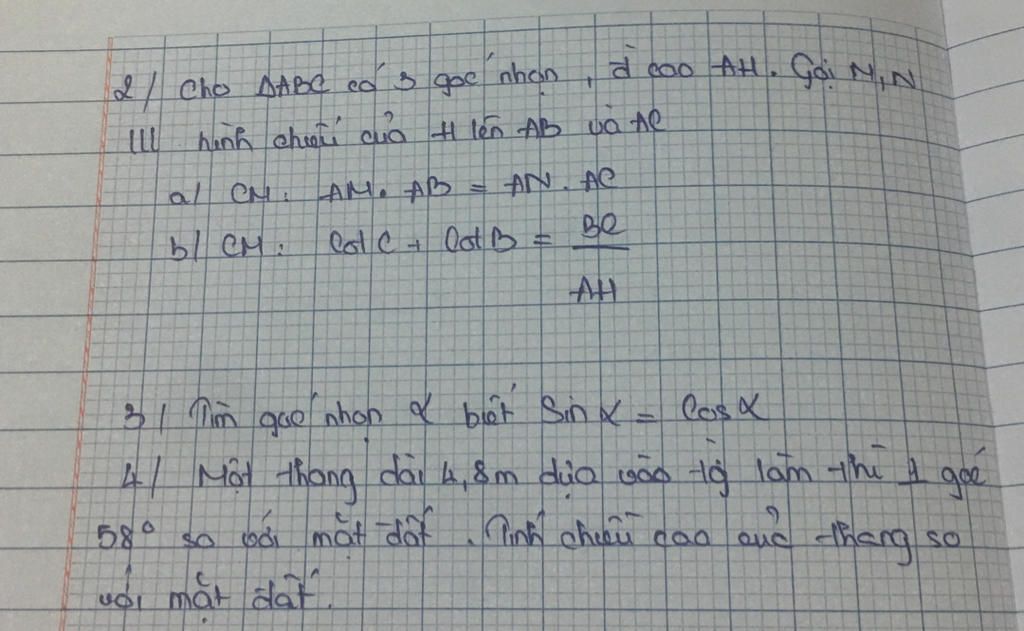 2/ Cho ΔABC có 3 góc nhọn, đ cao AH. Gọi M, N
lll hình chiếu của H lên AB và AC
a/ CM: AM. AB = AN. AC
b/ CM: Cot C + Cot B = BC
AH
3/ Tìm góc nhọn α biết Sin α = Cos α
4/ Một thang dài 4,8m dựa vào tg làm thì 1 góc
58° so với mặt đất. Tính chiều cao của thang so
với mặt đất.